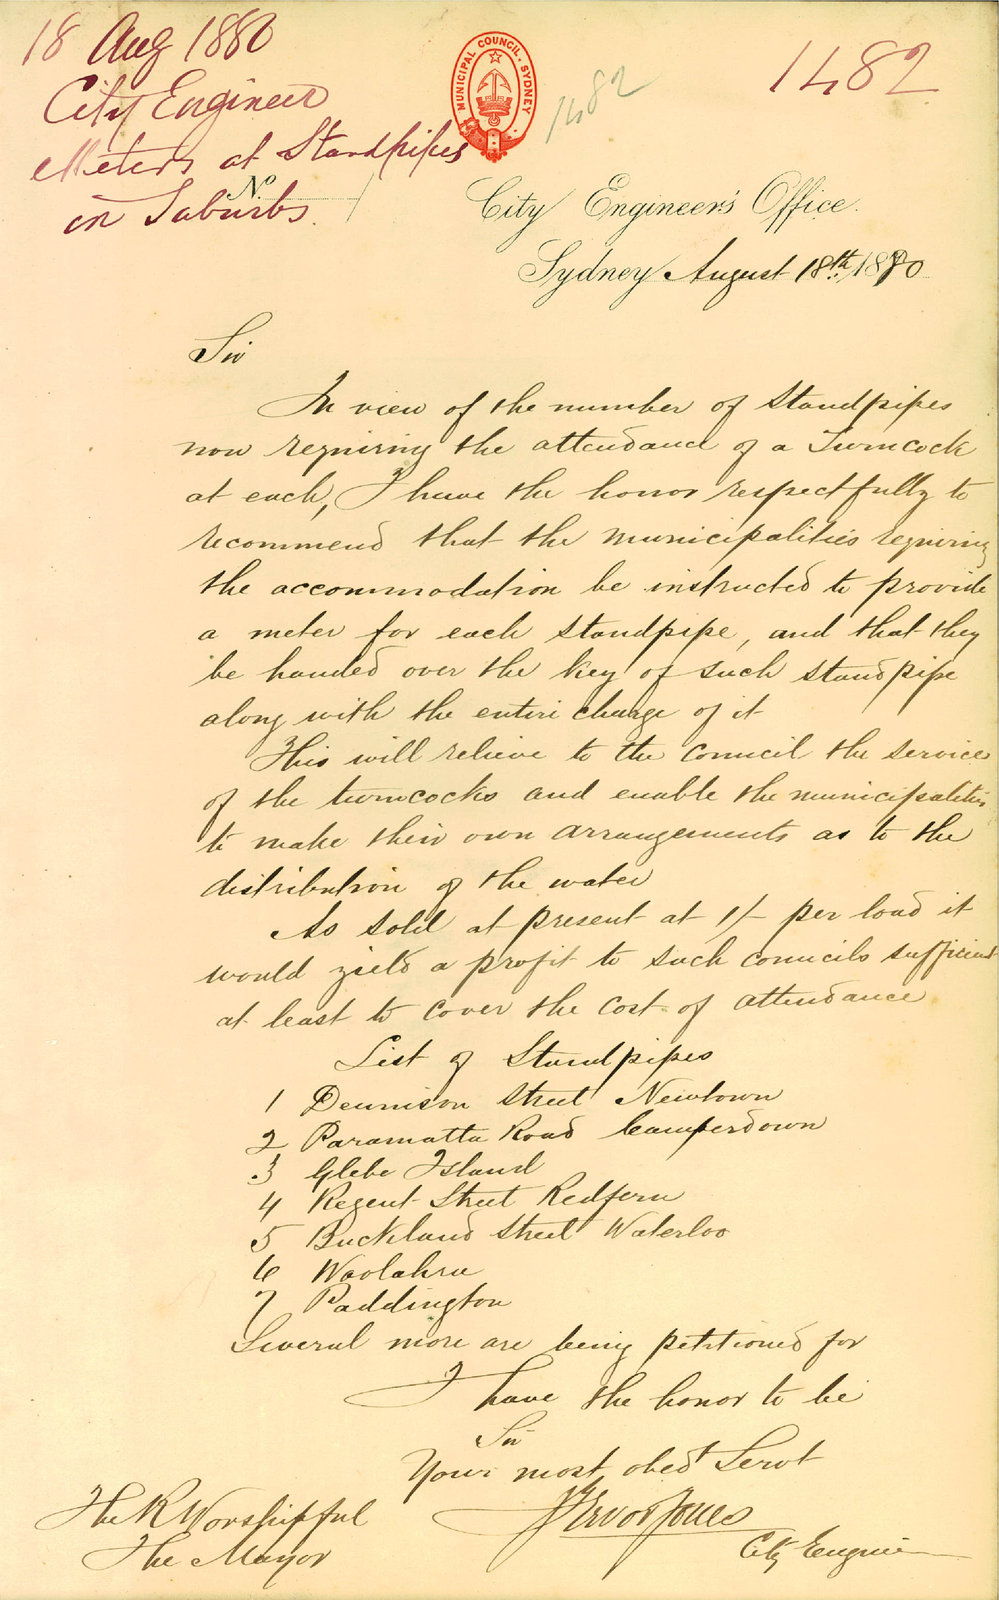 18 Aug 1880
City Engineer
Meters at Standpipes
in Suburbs.
No.
MUNICIPAL COUNCIL. SYDNEY
1482
1482
City Engineer's Office.
Sydney August 18th 1880
Sir
In view of the number of Standpipes
now requiring the attendance of a Turncock
at each, I have the honor respectfully to
recommend that the municipalities requiring
the accommodation be instructed to provide
a meter for each standpipe, and that they
be handed over the key of such standpipe
along with the entire charge of it
This will relieve to the council the service
of the turncocks and enable the municipalities
to make their own arrangements as to the
distribution of the water
As sold at present at 1/- per load it
would yield a profit to such councils sufficient
at least to cover the cost of attendance
List of Standpipes
1 Dennison Street Newtown
2 Paramatta Road Camperdown
3 Glebe Island
4 Regent Street Redfern
5 Buckland Street Waterloo
6 Woolahra
7 Paddington
Several more are being petitioned for
I have the honor to be
Sir
Your most obedt Servt
J Trevor Jones
City Engineer
The R Worshipful
The Mayor